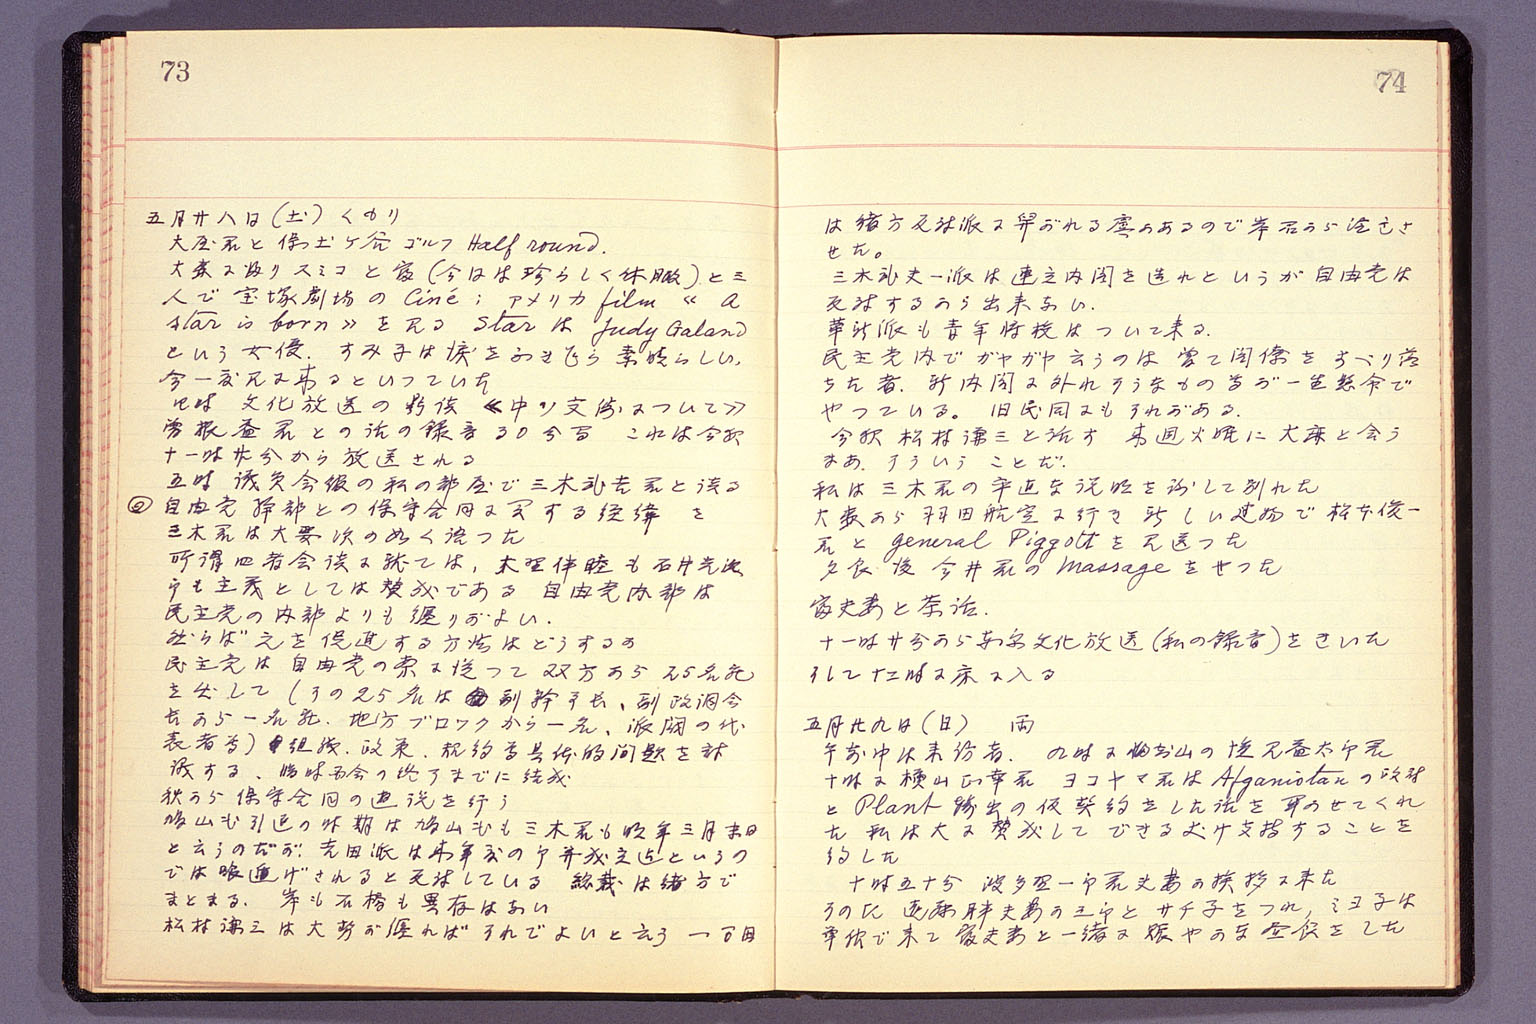 73
五月廿八日(土) くもり
大屋君と保土ヶ谷ゴルフ Half round.
大森に返り スミコと(今日は珍らしく休暇)と三
人で 宝塚劇場の Ciné; アメリカ film « a
star is born » を見る Star は Judy Galand
という女優. すみ子は涙をふきふき 素晴らしい,
今一度見に来るといっていた
文化放送の 《中ソ交渉について》
曽根益君との話の録音 30分 これは今夜
十一時廿分から放送される
五時 議員会館の私の部屋で三木武吉君と談る
② 自由党幹部との保守合同に関する経緯を
三木君は大要次の如く語った
所謂四者会談に就ては, 大野伴睦も石井光次
郎も主義としては賛成である 自由党内部は
民主党の内部よりも纏りがよい.
然らば之を促進する方法はどうするか
民主党は自由党の案に従って双方から25名宛
を出して (その25名は 副幹事長、副政調会
長から一名宛. 地方ブロックから一名、派閥の代
表者等) 組織. 政策. 規約等具体的問題を討
議する、臨時国会の終了までに結成
秋から保守合同の遊説を行う
鳩山氏引退の時期は鳩山氏も三木君も昨年三月末日
と云うのだが. 吉田派は来年度の予算成立迄というの
では喰逃げされると反対している 総裁は緒方で
まとまる. 岸も石橋も異存はない
松村謙三は大勢が纏ればそれでよいと云う 一万田
74
は緒方反対派に舁がれる虞があるので岸君から注意さ
せた。
三木武夫一派は連立内閣を造れというが自由党は
反対するから出来ない.
革新派も青年将校はついて来る.
民主党内でガヤガヤ云うのは曽て閣僚をすべり落
ちた者. 新内閣に外れそうなもの等が一生懸命で
やっている。 旧民同にもそれがある.
今夜 松村謙三と話す 来週火曜に大麻と会う
まあ. そういうことだ.
私は三木君の卒直な説明を謝して別れた
大森から羽田航空に行き新しい建物で松本俊一
君と general Piggott を見送った
夕食後 今井君の massage をやった
夫妻と茶話.
十一時廿分から 文化放送(私の録音)をきいた
そして十二時に床に入る
五月廿九日(日) 雨
午前中は来訪者. 九時に の 益太郎君
十時に横山正幸君 ヨコヤマ君は Afganistan の政府
と Plant 輸出の仮契約をした話を聞かせてくれ
た 私は大に賛成して できるだけ支援することを
約した
十時五十分 波多野一郎君夫妻の挨拶に来た
その后 夫妻が三郎とサチ子をつれ, ミヨ子は
単独で来て 夫妻と一緒に賑やかな昼食をした